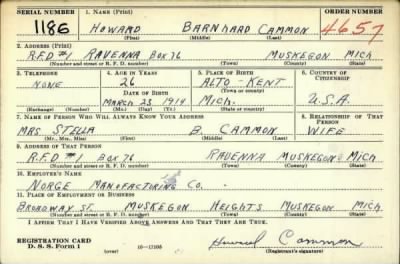 SERIAL NUMBER 1. NAME (Print) ORDER NUMBER
1186 HOWARD BARNHARD CAMMON 4657
(First) (Middle) (Last)
2. ADDRESS (Print)
R.F.D #1 RAVENNA BOX 76 MUSKEGON MICH
(Number and street or R. F. D. number) (Town) (County) (State)
3. TELEPHONE 4. AGE IN YEARS 5. PLACE OF BIRTH 6. COUNTRY OF CITIZENSHIP
NONE 26 ALTO - KENT
DATE OF BIRTH (Town) (County)
MARCH 23 1914 MICH. U.S.A.
(Exchange) (Number) (Mo.) (Day) (Yr.) (State or country)
7. NAME OF PERSON WHO WILL ALWAYS KNOW YOUR ADDRESS 8. RELATIONSHIP OF THAT PERSON
MRS. STELLA B. CAMMON WIFE
(Mr., Mrs., Miss) (First) (Middle) (Last)
9. ADDRESS OF THAT PERSON
R.F.D #1 BOX 76 RAVENNA MUSKEGON MICH
(Number and street or R. F. D. number) (Town) (County) (State)
10. EMPLOYER'S NAME
NORGE MANUFACTORING CO.
11. PLACE OF EMPLOYMENT OR BUSINESS
BROADWAY ST. MUSKEGON HEIGHTS MUSKEGON MICH
(Number and street or R. F. D. number) (Town) (County) (State)
I AFFIRM THAT I HAVE VERIFIED ABOVE ANSWERS AND THAT THEY ARE TRUE.
REGISTRATION CARD
D. S. S. Form 1 (over) 16-17105 Howard Cammon
(Registrant's signature)